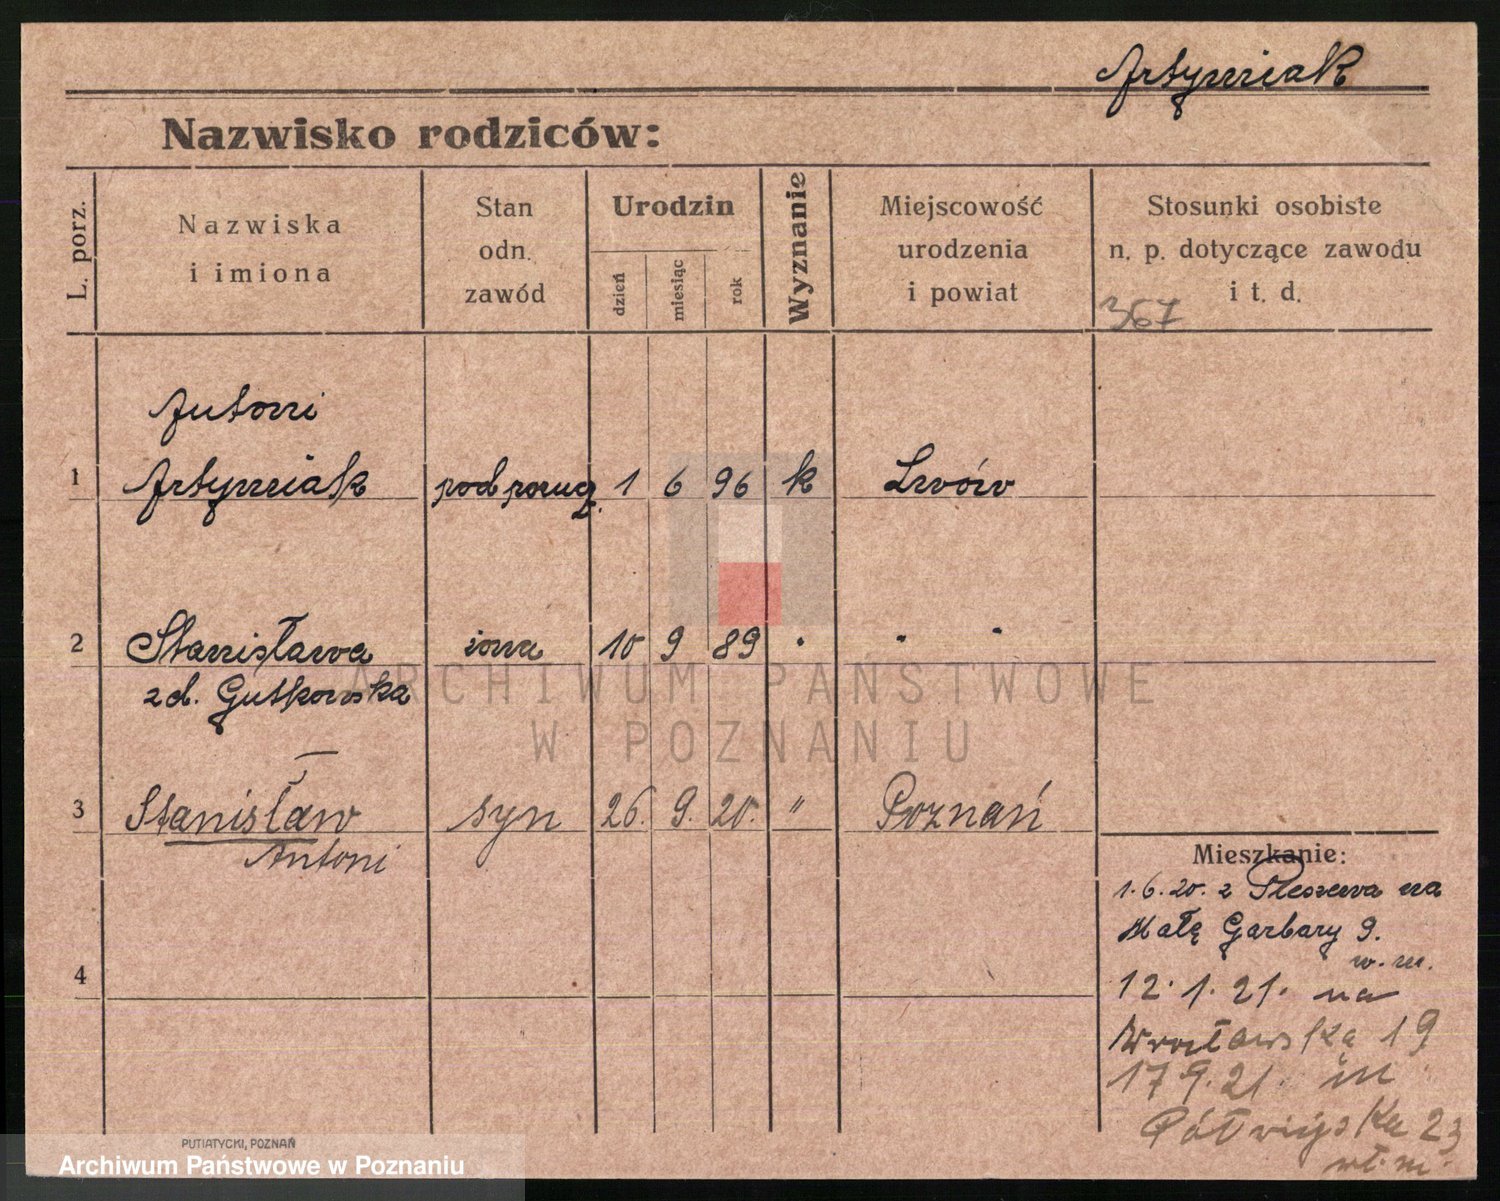 Artymiak
Nazwisko rodziców:
L. porz.
Nazwiska
i imiona
Stan
odn.
zawód
Urodzin
dzień
miesiąc
rok
Wyznanie
Miejscowość
urodzenia
i powiat
Stosunki osobiste
n. p. dotyczące zawodu
i t. d.
367
Antoni
1 Artymiak podporucz. 1 6 96 k Lwów
2 Stanisława żona 10 9 89 " " "
zd. Gutkowska
3 Stanisław syn 26. 9. 20. " Poznań
Antoni
Mieszkanie:
1.6.20. z Pleszewa na
Małe Garbary 9.
w. m.
4
12.1.21. na
Wrocławską 19
17 9.21. in
Półwiejska 23
wł. m.
ARCHIWUM PAŃSTWOWE
W POZNANIU
PUTIATYCKI, POZNAŃ
Archiwum Państwowe w Poznaniu